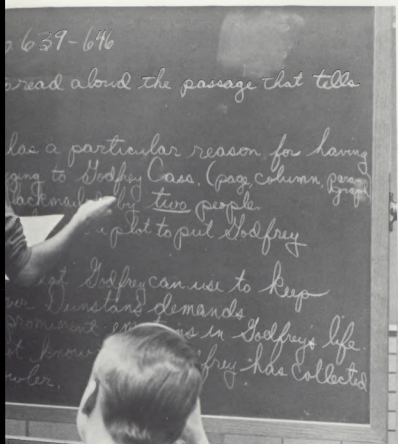 639-646
read aloud the passage that tells
has a particular reason for having
to Godfrey Cass. (page, column, paragraph)
by two people.
plot to put Godfrey
Godfrey can use to keep
Dunstan's demands
prominent in Godfrey's life.
know has collected